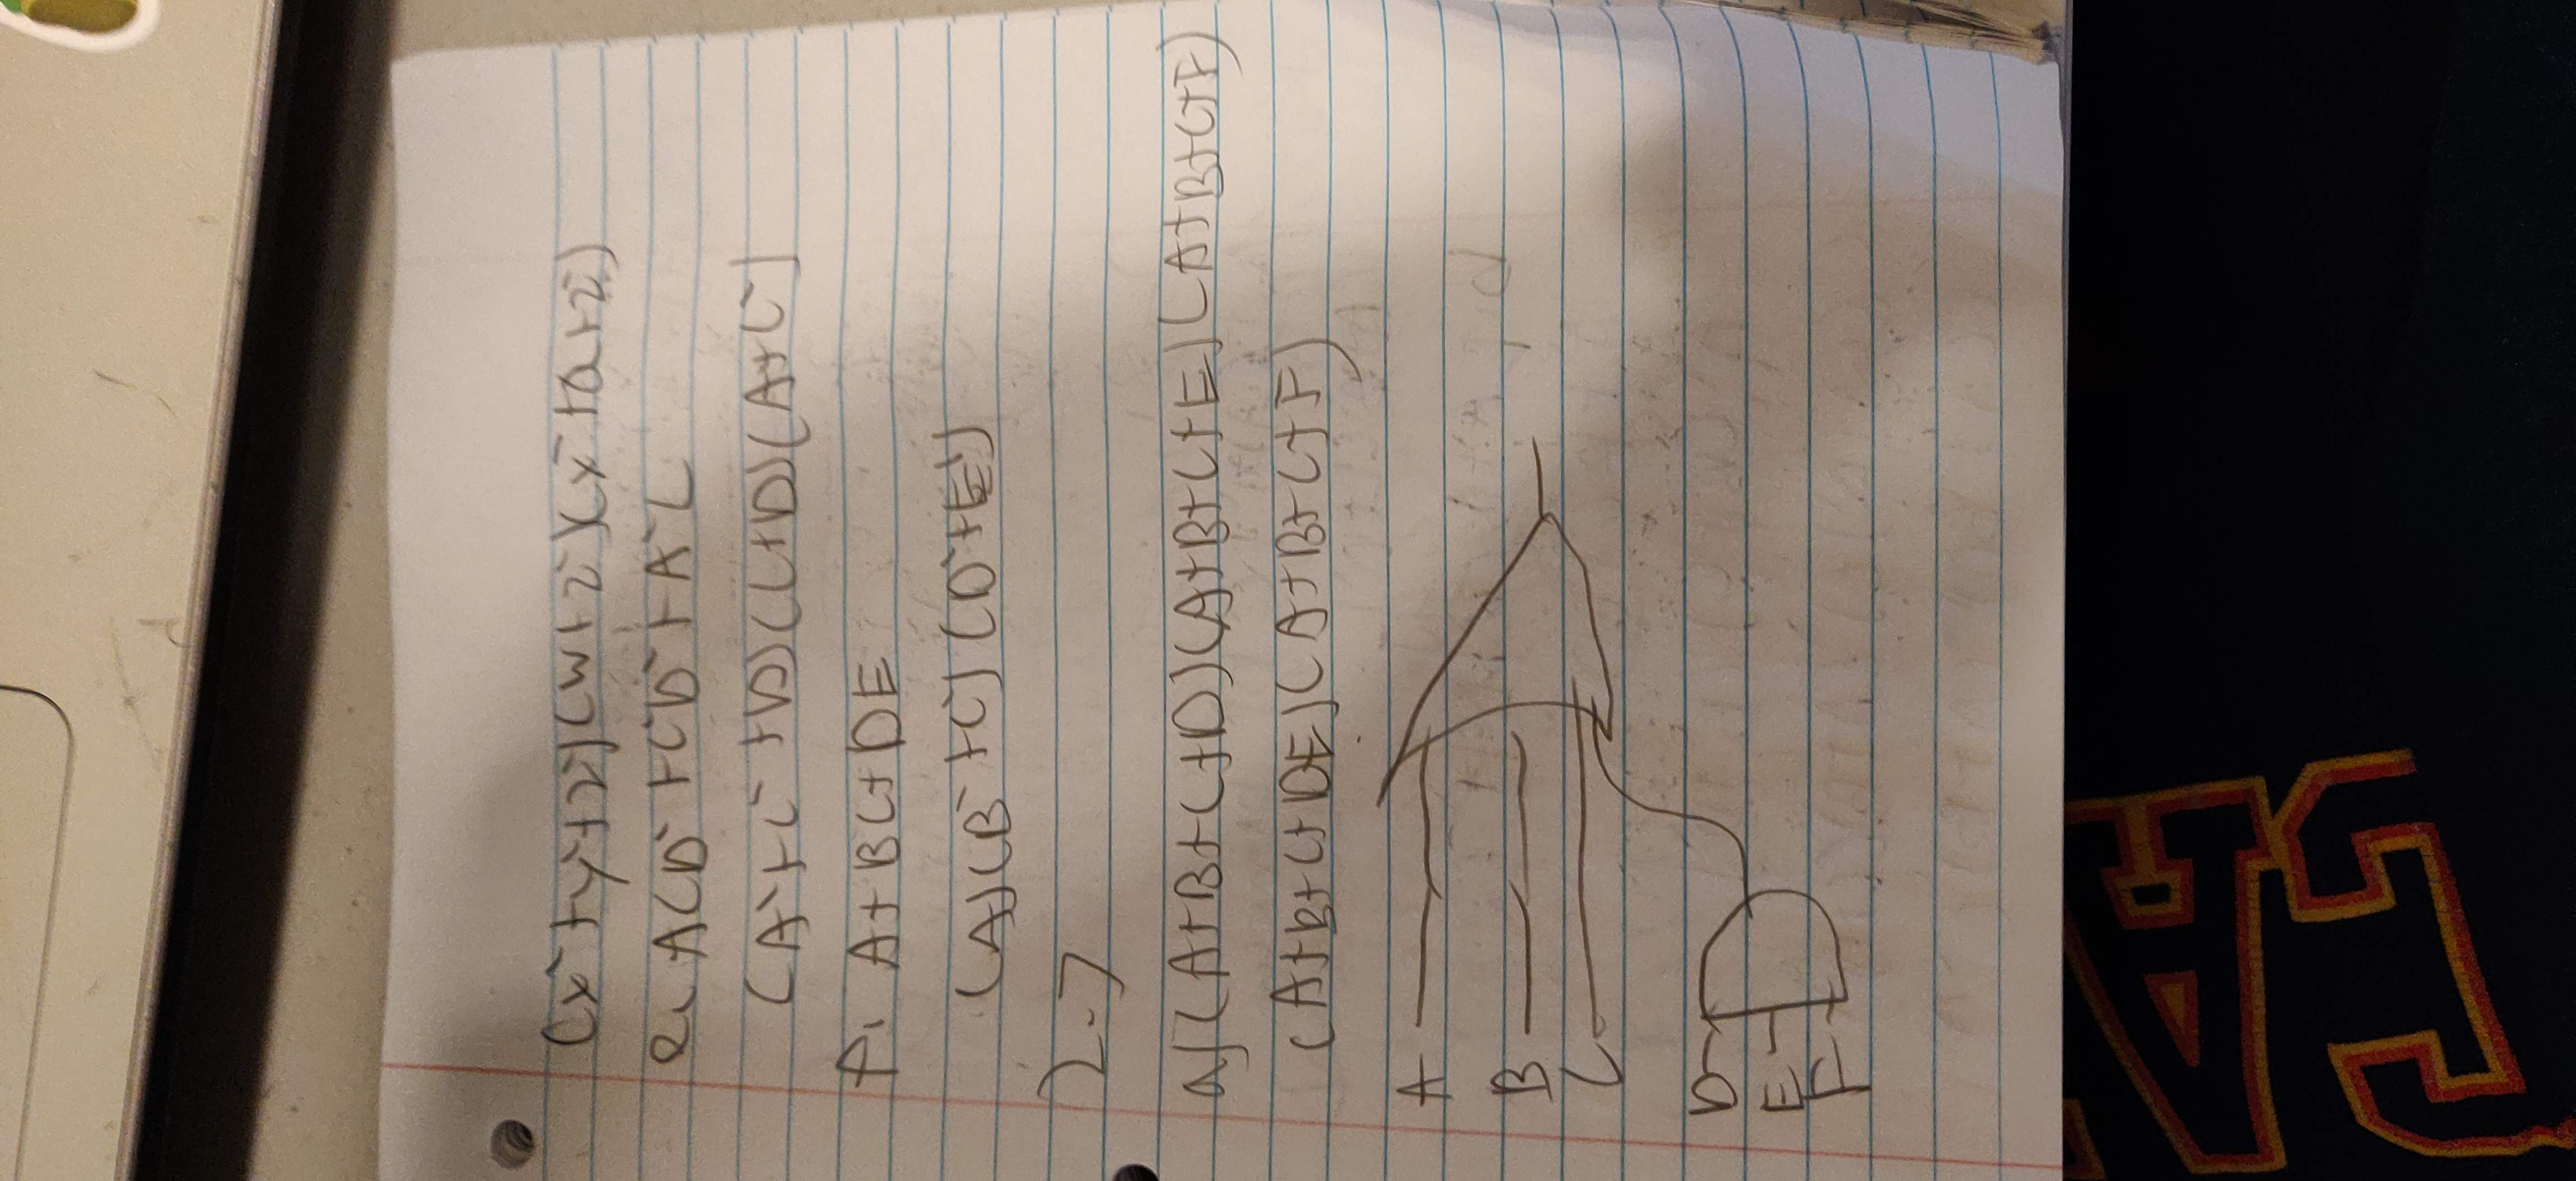 (x'+y'+z')(w+z')(x'+a+z')
e. ACD'+C'D'+A'C
(A'+C'+D)(C+D)(A+C')
f. A+BC+DE
(A)(B'+C')(D'+E')
2-7
a) (A+B+C+D)(A+B+C+E)(A+B+C+F)
(A+B+C+DE)(A+B+C+F)
A
B
C
D
E
F